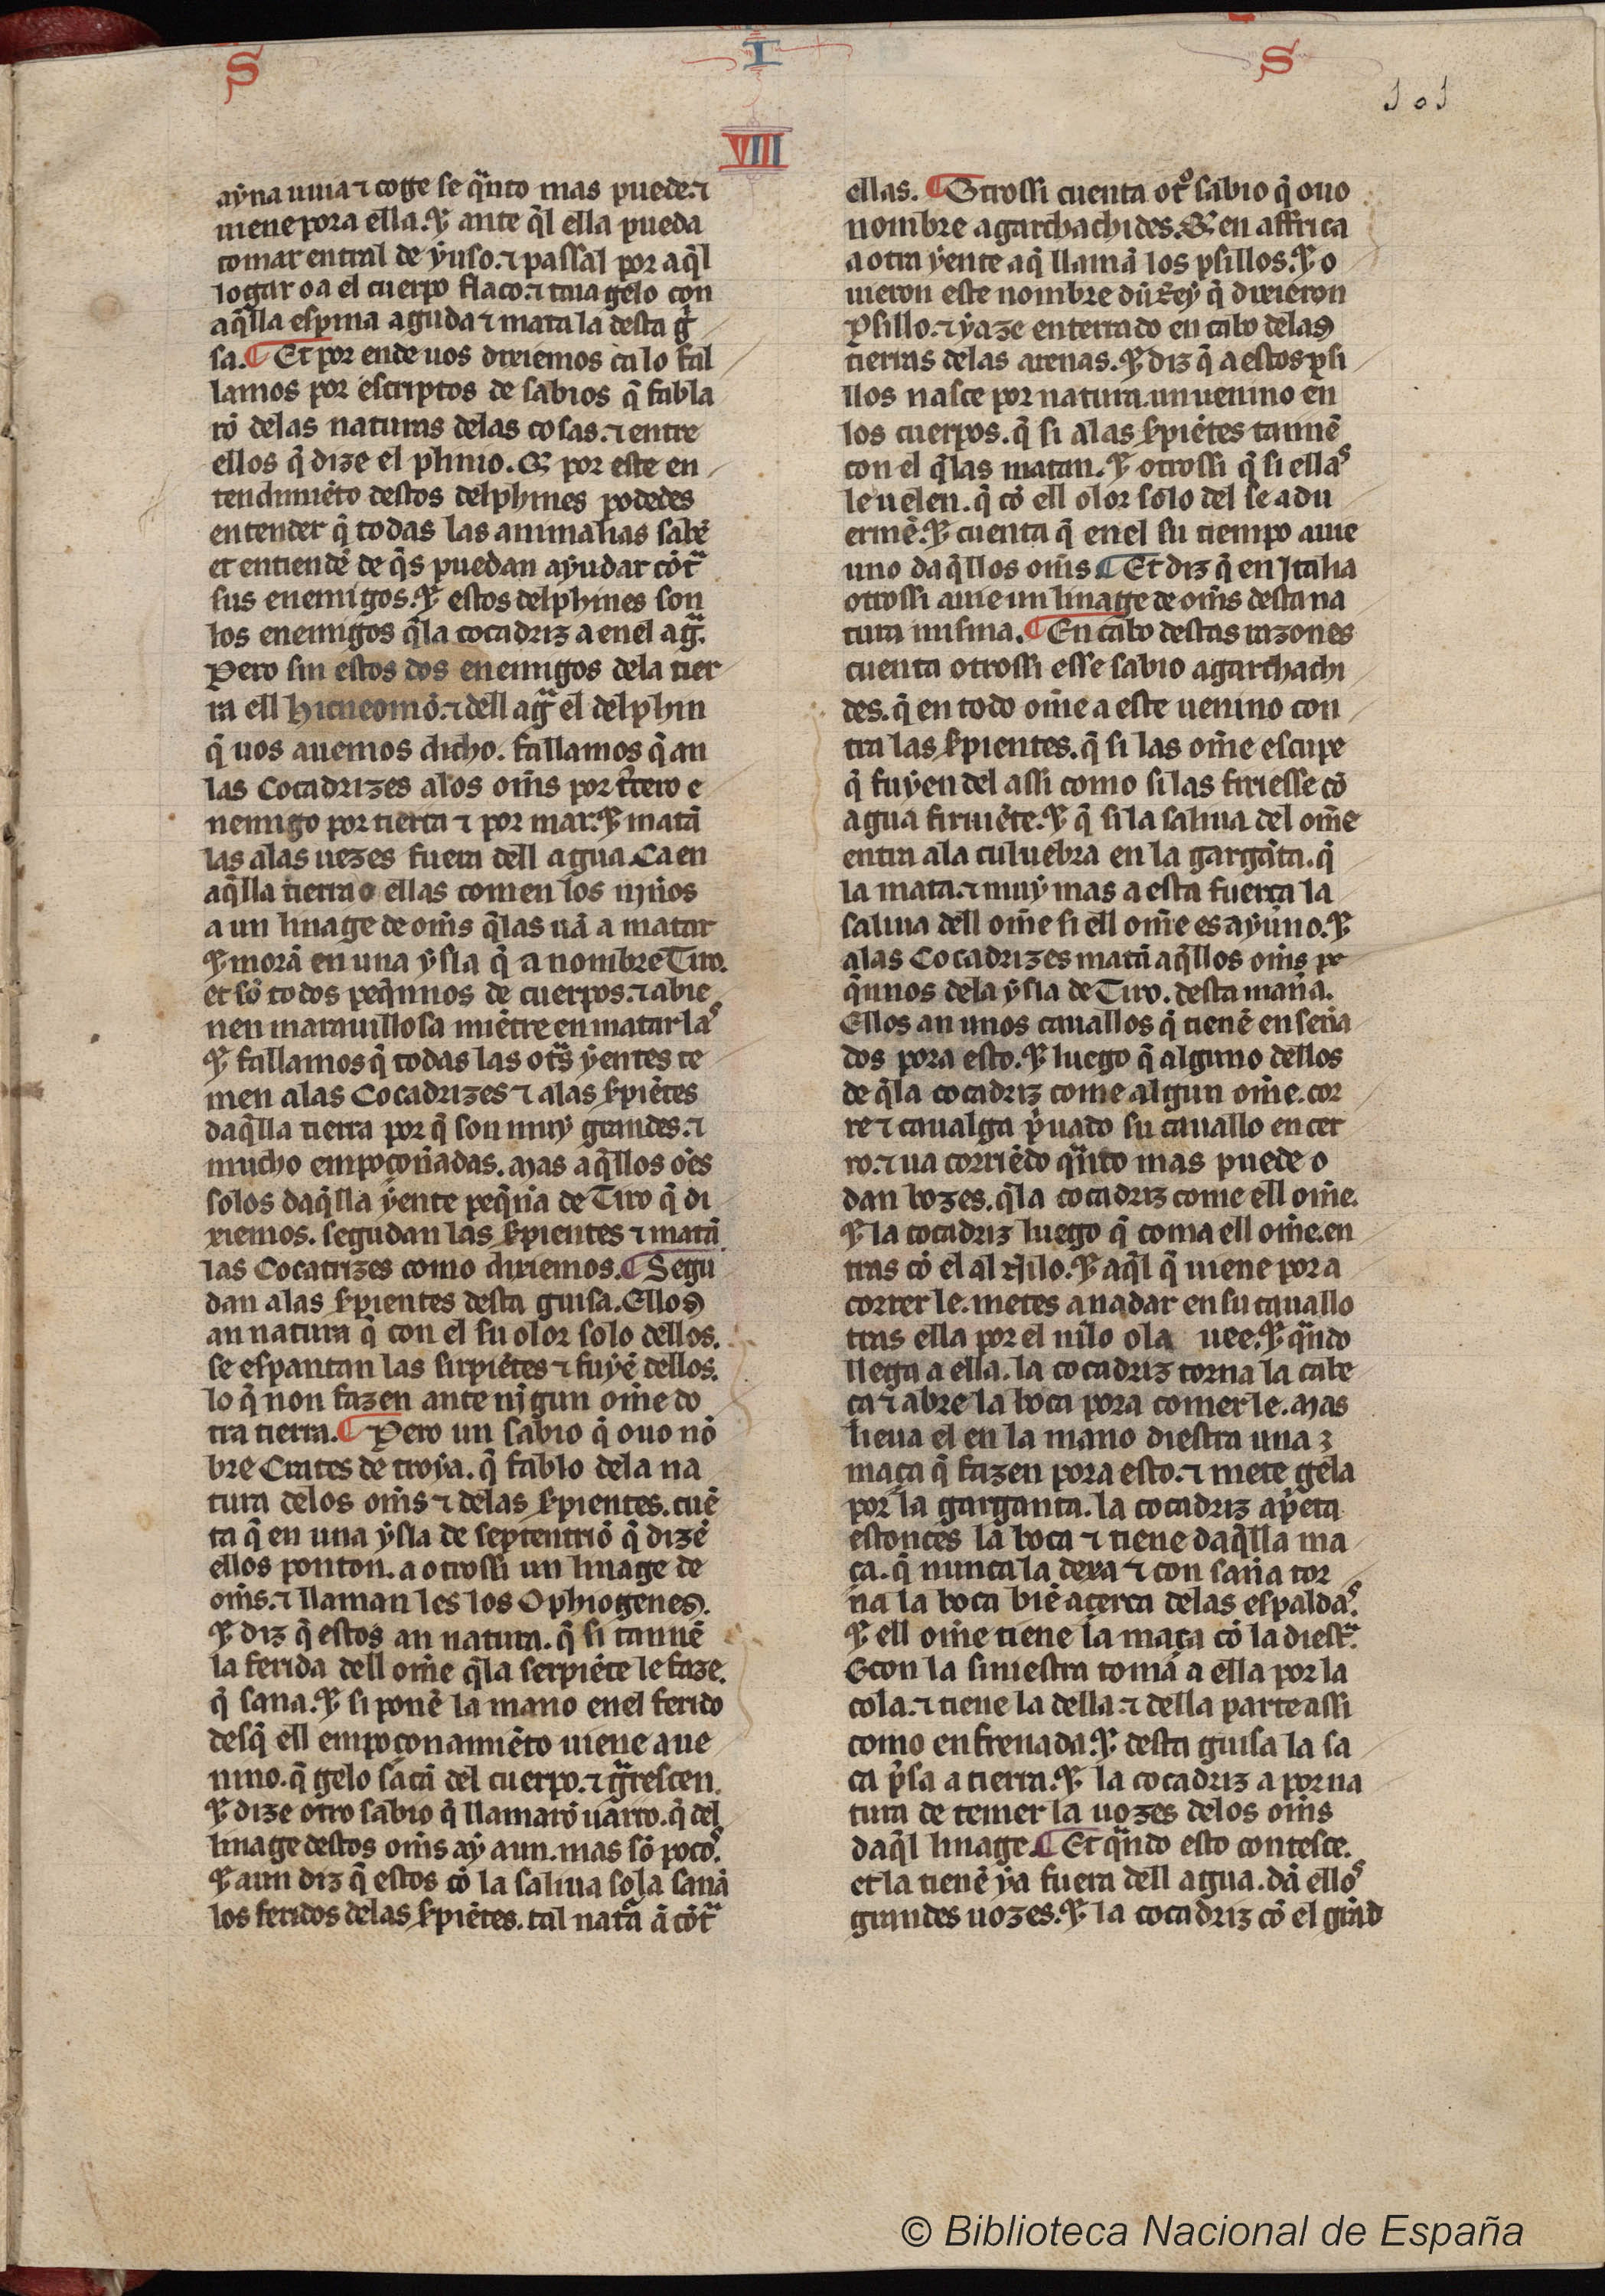 S I S
101
VIII
ayna uiua ⁊ coge se q̃nto mas puede. ⁊
uiene pora ella. Et ante q̃l ella pueda
tomar entral de yuso. ⁊ passal por aq̃l
logar o a el cuerpo flaco. ⁊ taia gelo con
aq̃lla espina aguda ⁊ mata la desta g̃
sa. ¶ Et por ende uos dixiemos ca lo fal
lamos por escriptos de sabios q̃ fabla
rõ delas naturas delas cosas. ⁊ entre
ellos q̃ dize el plinio. E por este en
tendimiẽto destos delphines podedes
entender q̃ todas las animalias sabẽ
et entiendẽ de q̃s puedan ayudar cõtª
sus enemigos. Et estos delphines son
los enemigos q̃la cocadriz a enel agª.
Pero sin estos dos enemigos dela tier
ra ell hicneomõ. ⁊ dell agª el delphin
q̃ uos auemos dicho. fallamos q̃ an
las Cocadrizes alos om̃s por t̃cero e
nemigo por tierra ⁊ por mar. Et matã
las alas uezes fuera dell agua. Ca en
aq̃lla tierra o ellas comen los nĩnos
a un linage de om̃s q̃las uã a matar
Et morã en una ysla q̃ a nombre Tiro.
et sõ todos peq̃nnos de cuerpos. ⁊ abie
nen marauillosa miẽtre en matar las
Et fallamos q̃ todas las otªs yentes te
men alas Cocadrizes ⁊ alas s̃piẽtes
daq̃lla tierra por q̃ son muy grandes. ⁊
mucho empoçoñadas. Mas aq̃llos oẽs
solos daq̃lla yente peq̃ña de Tiro q̃ di
xiemos. segudan las s̃pientes ⁊ matã
las Cocatrizes como diriemos. ¶ Segu
dan alas s̃pientes desta guisa. Ellos
an natura q̃ con el su olor solo dellos.
se espantan las sirpiẽtes ⁊ fuyẽ dellos.
lo q̃ non fazen ante nĩgun om̃e do
tra tierra. ¶ Pero un sabio q̃ ouo nõ
bre Crates de troya. q̃ fablo dela na
tura delos om̃s ⁊ delas s̃pientes. cuẽ
ta q̃ en una ysla de septentriõ q̃ dizẽ
ellos ponton. a otrossi un linage de
om̃s. ⁊ llaman les los Ophiogenes.
Et diz q̃ estos an natura. q̃ si tannẽ
la ferida dell om̃e q̃la serpiẽte le faze.
q̃ sana. Et si ponẽ la mano enel ferido
desq̃ ell empoçonamiẽto uiene a ue
nino. q̃ gelo sacã del cuerpo. ⁊ gªrescen.
Et dize otro sabio q̃ llamarõ uarro. q̃ del
linage destos om̃s ay aun. mas sõ pocos.
Et aun diz q̃ estos cõ la saliua sola sanã
los feridos delas s̃piẽtes. tal natª ã cõtª
ellas. ¶ Otrossi cuenta otº sabio q̃ ouo
nombre agarthachides. E en affrica
a otra yente aq̃ llamã los psillos. Et o
uieron este nombre dũ Rey q̃ dixieron
Psillo. ⁊ yaze enterrado en cabo delas
tierras delas arenas. Et diz q̃ a estos psi
llos nasce por natura un uenino en
los cuerpos. q̃ si alas s̃piẽtes tannẽ
con el q̃las matan. Et otrossi q̃ si ellas
le uelen. q̃ cõ ell olor solo del se adu
ermẽ. Et cuenta q̃ enel su tiempo auie
uno daq̃llos om̃s ¶ Et diz q̃ en Italia
otrossi auie un linage de om̃s desta na
tura misma. ¶ En cabo destas razones
cuenta otrossi esse sabio agarthachi
des. q̃ en todo om̃e a este uenino con
tra las s̃pientes. q̃ si las om̃e escupe
q̃ fuyen del assi como si las firiesse cõ
agua firuiẽte. Et q̃ si la saliua del om̃e
entra ala culuebra en la gargãta. q̃
la mata. ⁊ muy mas a esta fuerça la
saliua dell om̃e si ell om̃e es ayuno. Et
alas Cocadrizes matã aq̃llos om̃s pe
q̃nnos dela ysla de Tiro. desta mañ̃a.
Ellos an unos cauallos q̃ tienẽ enseña
dos pora esto. Et luego q̃ alguno dellos
de q̃la cocadriz come algun om̃e. cor
re ⁊ caualga p̃uado su cauallo en cer
ro. ⁊ ua corriẽdo q̃nto mas puede o
dan bozes. q̃la cocadriz come ell om̃e.
Et la cocadriz luego q̃ coma ell om̃e. en
tras cõ el al Nilo. Et aq̃l q̃ uiene por a
correr le. metes a nadar en su cauallo
tras ella por el nilo o la uee. Et q̃ndo
llega a ella. la cocadriz torna la cabe
ça ⁊ abre la boca pora comerle. Mas
lieua el en la mano diestra una
maça q̃ fazen pora esto. ⁊ mete gela
por la garganta. la cocadriz ap̃eta
estonces la boca ⁊ tiene daq̃lla ma
ça. q̃ nunca la dexa ⁊ con saña tor
na la boca biẽ acerca delas espaldas.
Et ell om̃e tiene la maça cõ la diestª.
E con la siniestra tomã a ella por la
cola. ⁊ tiene la della ⁊ della parte assi
como enfrenada. Et desta guisa la sa
ca p̃sa a tierra. Et la cocadriz a por na
tura de temer la uozes delos om̃s
daq̃l linage. ¶ Et q̃ndo esto contesce.
et la tienẽ ya fuera dell agua. dã ellos
grandes uozes. Et la cocadriz cõ el grãd
© Biblioteca Nacional de España